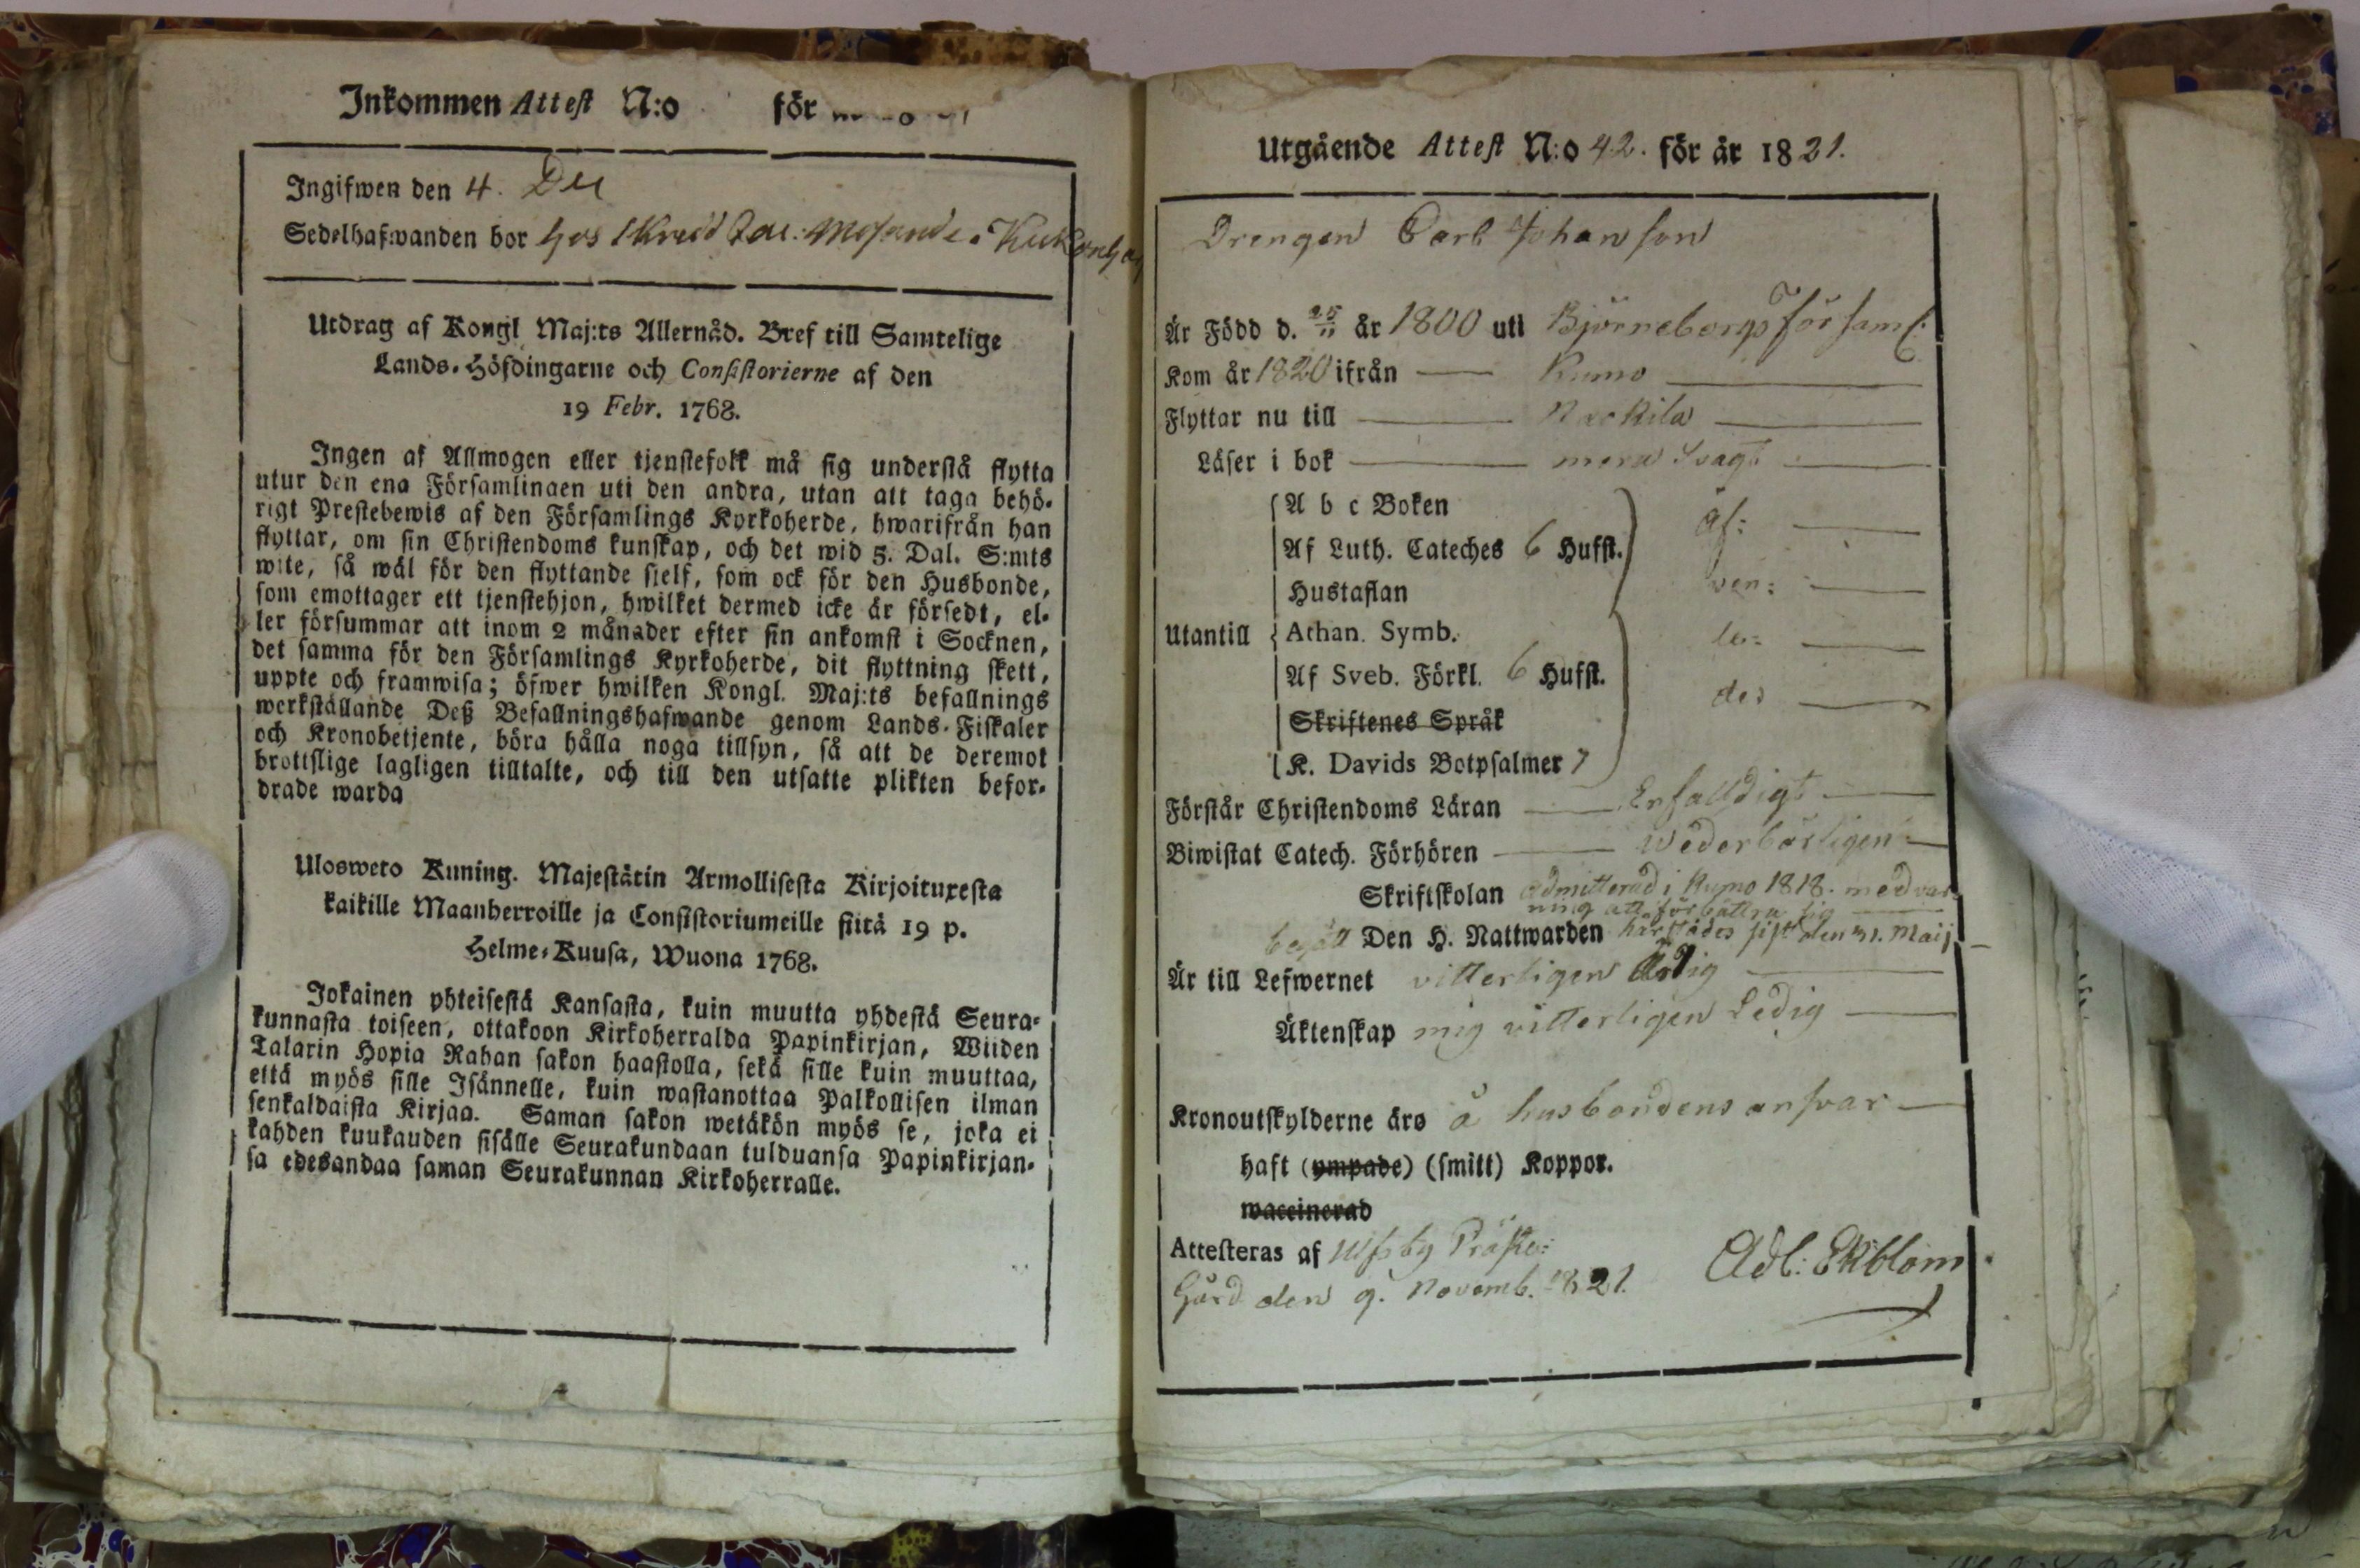 Inkommen Attest N:o för
Ingifwen den 4. Dec
Sedelhafwanden bor hos Skredd
Utdrag af Kongl Maj:ts Allernåd. Bref till Samtelige
Lands-Höfdingarne och Consistorierne af den
19 Febr. 1768.
Ingen af Allmogen eller tjenstefolk må sig understå flytta
utur den ena Församlingen uti den andra, utan att taga behö-
rigt Prestebewis af den Församlings Kyrkoherde, hwarifrån han
flyttar, om sin Christendoms kunskap, och det wid 5. Dal. S:mts
wite, så wäl för den flyttande sielf, som ock för den Husbonde,
som emottager ett tjenstehjon, hwilket dermed icke är försedt, el-
ler försummar att inom 2 månader efter sin ankomst i Socknen,
det samma för den Församlings Kyrkoherde, dit flyttning skett,
uppte och framwisa; öfwer hwilken Kongl. Maj:ts befallnings
werkställande Deß Befallningshafwande genom Lands-Fiskaler
och Kronobetjente, böra hålla noga tillsyn, så att de deremot
brottslige lagligen tilltalte, och till den utsatte plikten befor-
drade warda
Uloswero Kuning. Majestätin Armollisesta Kirjoituxesta
kaikille Maanherroille ja Consistoriumeille siitä 19 p.
Helme-Kuusa, Wuona 1768.
Jokainen yhteisestä Kansasta, kuin muutta yhdestä Seura-
kunnasta toiseen, ottakoon Kirkoherralda Papinkirjan, Wiiden
Talarin Hopia Rahan sakon haastolla, sekä sille kuin muuttaa,
että myös sille Isännelle, kuin wastanottaa Palkollisen ilman
senkaldaista Kirjaa. Saman sakon wetäkön myös se, joka ei
kahden kuukauden sisälle Seurakundaan tulduansa Papinkirjan-
sa edesandaa saman Seurakunnan Kirkoherralle.
Utgående Attest N:o 42. för år 1821.
Drengen Carl Johanson
Är Född d. 25/11 år 1800 uti Björneborgs församl.
Kom år 1820 ifrån Kumo
Flyttar nu till Nackila
Läser i bok mera svagt
A b c Boken äf:
Af Luth. Cateches 6 Hufst.
Hustaflan ven:
Utantill Athan. Symb. le:
Af Sveb. Förkl. 6 Hufst. des
Skriftenes Språk
K. Davids Botpsalmer 7
Förstår Christendoms Läran Enfalldigt
Biwistat Catech. Förhören Wederbörligen
Skriftskolan admitterad i Kumo 1818. med var-
ning att förbättra sig
begått Den H. Nattwarden härstädes sist den 31. Maij
Är till Lefwernet vitterligen ärlig
Äktenskap mig vitterligen Ledig
Kronoutskylderne äro å husbondens ansvar
haft (ympade) (smitt) Koppor.
waccinerad
Attesteras af Ulfsby Präste-
Gård den 9. Novemb. 1821. Adl: Ekblom